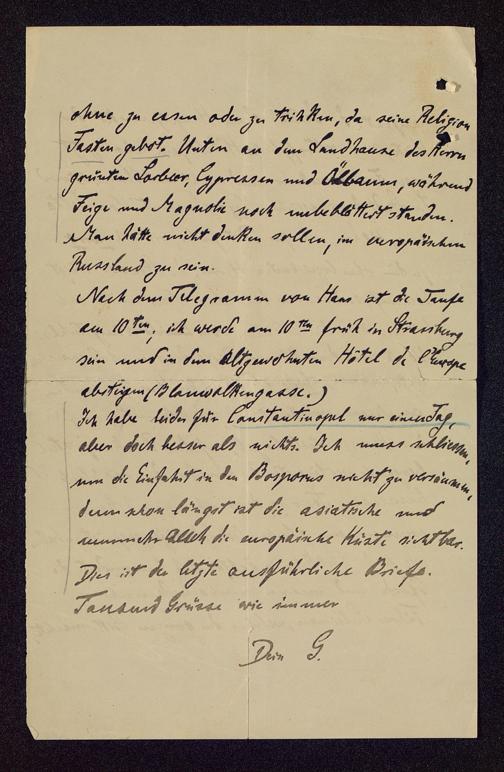 ohne zu essen oder zu trinken, da seine Religion
Fasten gebot. Unten an dem Landhause des Herrn
grünten Lorbeer, Cypressen und Ölbaum, während
Feige und Magnolie noch unbeblättert standen.
Man hätte nicht denken sollen, im europäischen
Russland zu sein.
Nach dem Telegramm von Hans ist die Taufe
am 10ten; ich werde am 10ten früh in Strassburg
sein und in dem altgewohnten Hôtel de l'Europe
absteigen (Blauwolkengasse.)
Ich habe leider für Constantinopel nur einen Tag,
aber doch besser als nichts. Ich muss schliessen,
um die Einfahrt in den Bosporus nicht zu versäumen,
denn schon längst ist die asiatische und
nunmehr auch die europäische Küste sichtbar.
Dies ist der letzte ausführliche Brief.
Tausend Grüsse wie immer
Dein G.